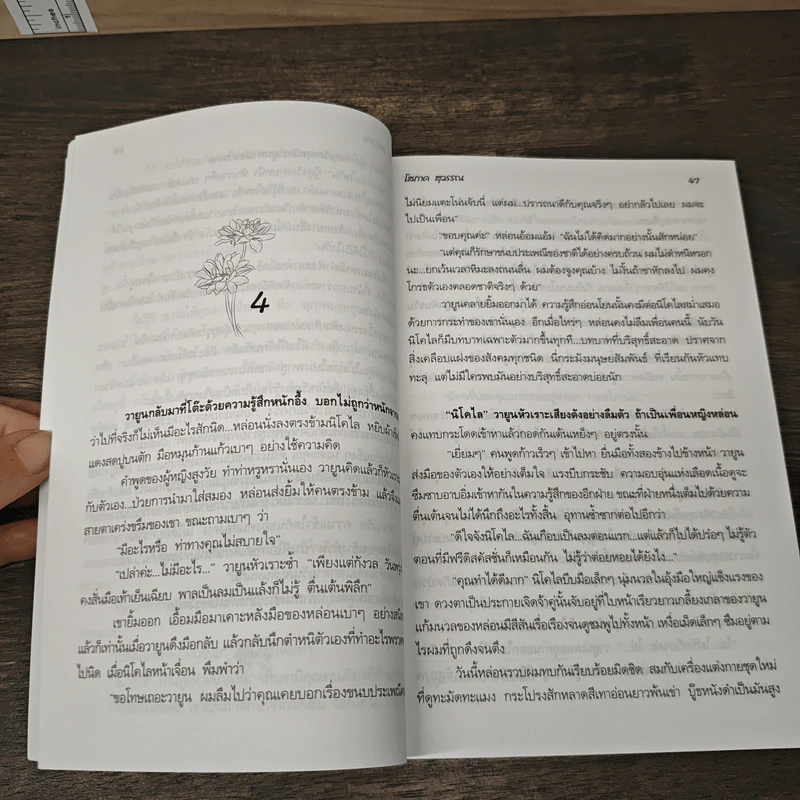 inches
1
4
วายูนกลับมาที่โต๊ะด้วยความรู้สึกหนักอึ้ง บอกไม่ถูกว่าหนักจาก
ว่าไปที่จริงก็ไม่เห็นมีอะไรสักนิด...หล่อนนั่งลงตรงข้ามนิโคไล หยิบผ้าเช็ด
แดงสดปูบนตัก มือหมุนก้านแก้วเบาๆ อย่างใช้ความคิด
คำพูดของผู้หญิงสูงวัย ทำท่าหรูหรานั่นเอง วายูนคิดแล้วก็หัวเราะ
กับตัวเอง...ป่วยการนำมาใส่สมอง หล่อนส่งยิ้มให้คนตรงข้าม แล้วจึง
สายตาเคร่งขรึมของเขา ขณะถามเบาๆ ว่า
"มีอะไรหรือ ท่าทางคุณไม่สบายใจ"
"เปล่าค่ะ...ไม่มีอะไร..." วายูนหัวเราะซ้ำ "เพียงแต่กังวล วันพรุ่
คงสั่นมือเท้าเย็นเฉียบ พาลเป็นลมเป็นแล้งก็ไม่รู้ ตื่นเต้นพิลึก"
เขายิ้มออก เอื้อมมือมาเคาะหลังมือของหล่อนเบาๆ อย่างสนิท
แล้วก็เท่านั้นเมื่อวายูนดึงมือกลับ แล้วกลับนึกตำหนิตัวเองที่ทำอะไรพรวด
ไปนิด เมื่อนิโคไลหน้าเจื่อน พึมพำว่า
"ขอโทษเถอะวายูน ผมลืมไปว่าคุณเคยบอกเรื่องขนบประเพณี
โสภาค สุวรรณ
47
ไม่นิยมแตะโน่นจับนี่ แต่ผม...ปรารถนาดีกับคุณจริงๆ อย่ากลัวไปเลย ผมจะ
ไปเป็นเพื่อน"
"ขอบคุณค่ะ" หล่อนอ้อมแอ้ม "ฉันไม่ได้คิดมากอย่างนั้นสักหน่อย"
"แต่คุณก็รักษาขนบประเพณีของชาติได้อย่างครบถ้วน ผมไม่ตำหนิหรอก
นะ...ยกเว้นเวลาหิมะลงถนนลื่น ผมต้องจูงคุณบ้าง ไม่งั้นถ้าขาหักลงไป ผมคง
โกรธตัวเองตลอดชาติจริงๆ ด้วย"
วายูนคลายยิ้มออกมาได้ ความรู้สึกอ่อนโยนนั้นคงมีต่อนิโคไลสม่ำเสมอ
ด้วยการกระทำของเขานั่นเอง อีกเมื่อไหร่ๆ หล่อนคงไม่ลืมเพื่อนคนนี้ นับวัน
นิโคไลก็มีบทบาทเฉพาะตัวมากขึ้นทุกที...บทบาทที่บริสุทธิ์สะอาด ปราศจาก
สิ่งเคลือบแฝงของสังคมทุกชนิด นี่กระมังมนุษย์สัมพันธ์ ที่เรียนกันหัวแทบ
ทะลุ แต่ไม่มีใครพบมันอย่างบริสุทธิ์สะอาดบ่อยนัก
"นิโคไล" วายูนหัวเราะเสียงดังอย่างลืมตัว ถ้าเป็นเพื่อนหญิงหล่อน
คงแทบกระโดดเข้าหาแล้วกอดกันเต้นเหยิงๆ อยู่ตรงนั้น
"เยี่ยมๆ" คนพูดก้าวเร็วๆ เข้าไปหา ยื่นมือทั้งสองข้างไปข้างหน้า วายูน
ส่งมือของตัวเองให้อย่างเต็มใจ แรงบีบกระชับ ความอบอุ่นแห่งเลือดเนื้อดูจะ
ซึมซาบอาบอิ่มเข้าหากันในความรู้สึกของอีกฝ่าย ขณะที่ฝ่ายหนึ่งเต็มไปด้วยความ
ตื่นเต้นจนไม่ได้นึกถึงอะไรทั้งสิ้น อุทานซ้ำซากต่อไปอีกว่า
"ดีใจจังนิโคไล...ฉันเกือบเป็นลมตอนแรก...แต่แล้วก็ไปได้ปร๋อๆ ไม่รู้ตัว
ตอนที่มีฟรีดิสคัสชั่นก็เหมือนกัน ไม่รู้ว่าต่อยหอยได้ยังไง..."
"คุณทำได้ดีมาก" นิโคไลบีบมือเล็กๆ นุ่มนวล ในอุ้งมือใหญ่แข็งแรงของ
เขา ดวงตาเป็นประกายเจิดจ้าคู่นั้นจับอยู่ที่ใบหน้าเรียวยาวเกลี้ยงเกลาของวายูน
แก้มนวลของหล่อนมีสีสันเรื่อเรืองจนดูชมพูไปทั้งหน้า เหงื่อเม็ดเล็กๆ ซึมอยู่ตาม
ไรผมที่ถูกดึงจนตึง
วันนี้หล่อนรวบผมทบกันเรียบร้อยมิดชิด สมกับเครื่องแต่งกายชุดใหม่
ที่ดูทะมัดทะแมง กระโปรงสักหลาดสีเทาอ่อนยาวพ้นเข่า บู๊ชหนังดำเป็นมันสูง